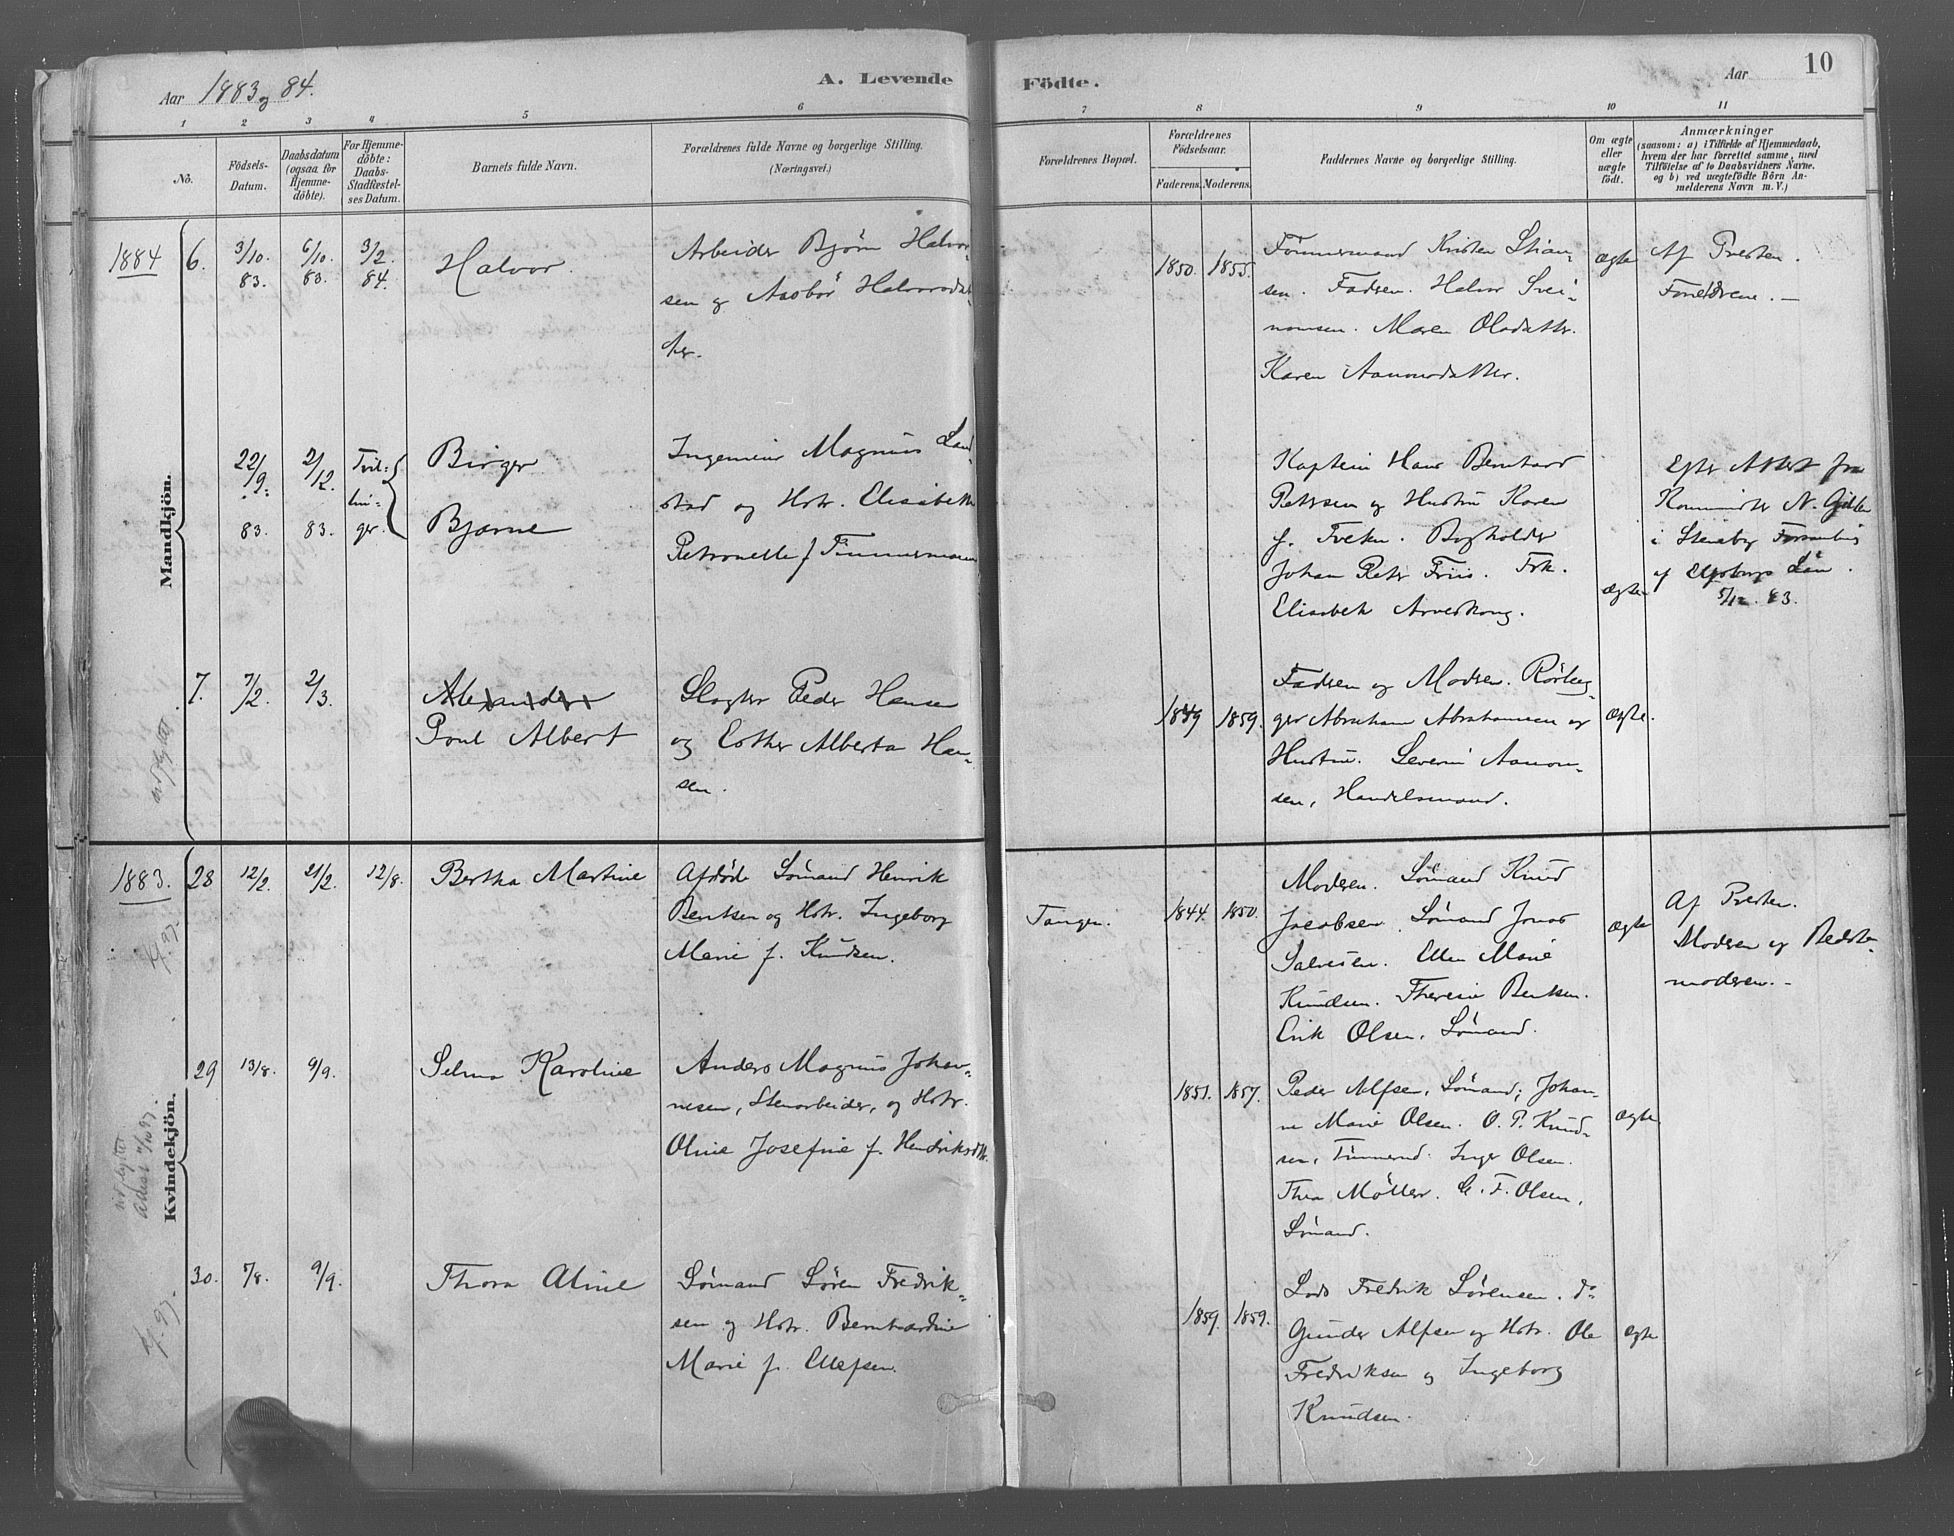 Aar 1883 og 84.
A. Levende
Födte.
Aar
10
1 2 3 4 5 6 7 8 9 10 11
No.
Födsels-
Datum.
Daabsdatum
(ogsaa for
Hjemme-
döbte).
For Hjemme-
döbte:
Daabs-
Stadfæstel-
ses Datum.
Barnets fulde Navn.
Forældrenes fulde Navne og borgerlige Stilling.
(Næringsvei.)
Forældrenes Bopæl.
Forældrenes
Födselsaar.
Faderens. Moderens.
Faddernes Navne og borgerlige Stilling.
Om ægte
eller
uægte
födt.
Anmærkninger
(saasom: a) i Tilfælde af Hjemmedaab,
hvem der har forrettet samme, med
Tilföielse af to Daabsvidners Navne.
og b) ved uægtefödte Börn An-
melderens Navn m. V.)
Mandkjön.
1884
6.
3/10.
83.
6/10.
83.
3/2.
84.
Halvor.
Arbeider Bjørn Halvor-
sen og Aasbör Halvorsdat-
ter.
1850. 1855.
Tömmermand Kristen Stian-
sen. Fadren. Halvor Svei-
nomsen. Maren Olsdatter.
Karen Aanonsdatter.
ægte
Af Presten.
Forældrene. —
22/9.
83.
2/12.
83.
Tvil-
lin-
ger.
Birger
Bjarne
Ingeniør Magnus Land-
stad og Hstr. Elisabeth
Petronelle f. Timmermann
Kaptein Hans Bernhard
Petersen og Hustru Karen
f. Tveten. Bogholder
Johan Peter Friis. Frk.
Elisabeth Arveskoug.
ægte
Efter Attest fra
Komminister N.
i Steneby
af Elfsborgs Län.
5/12. 83.
7.
7/2
2/3.
Alexander
Poul Albert
Slagter Peder Hansen
og Esther Alberta Han-
sen.
1849 1859.
Fadren og Modren. Rörlæg-
ger Abraham Abrahamsen og
Hustru. Severin Aanon-
sen, Handelsmand.
ægte.
udflyttet
Kvindekjön.
1883.
28
12/2.
21/2.
12/8.
Bertha Martine
Afdöde Sömand Henrik
Bentsen og Hstr. Ingeborg
Marie f. Knudsen.
Tangen.
1844. 1850.
Modren. Sömand Knud
Jacobsen. Sömand Jonas
Salvesen. Ellen Marie
Knudsen. Theresie Bentsen.
Erik Olsen, Sömand.
ægte
Af Presten.
Modren og Bedste-
moderen. -
29
13/8.
9/9.
Selma Karoline
Anders Magnus Johan-
nesen, Stenarbeider, og Hstr.
Oline Josefine f. Hendriksdtr.
1851. 1857.
Peder Alfsen, Sömand; Johan-
ne Marie Olsen. O. P. Knud-
sen, Tömmermd. Inger Olsen.
Thea Möller. G. F. Olsen,
Sömand.
ægte
udflyttet
Attest
30.
7/8.
9/9.
Thora Aline
Sömand Sören Fredrik-
sen og Hstr. Bernhardine
Marie f. Ellefsen.
1859. 1859.
Lods Fredrik Sörensen. do
Gunder Alfsen og Hstr. Ole
Fredriksen og Ingeborg
Knudsen.
ægte